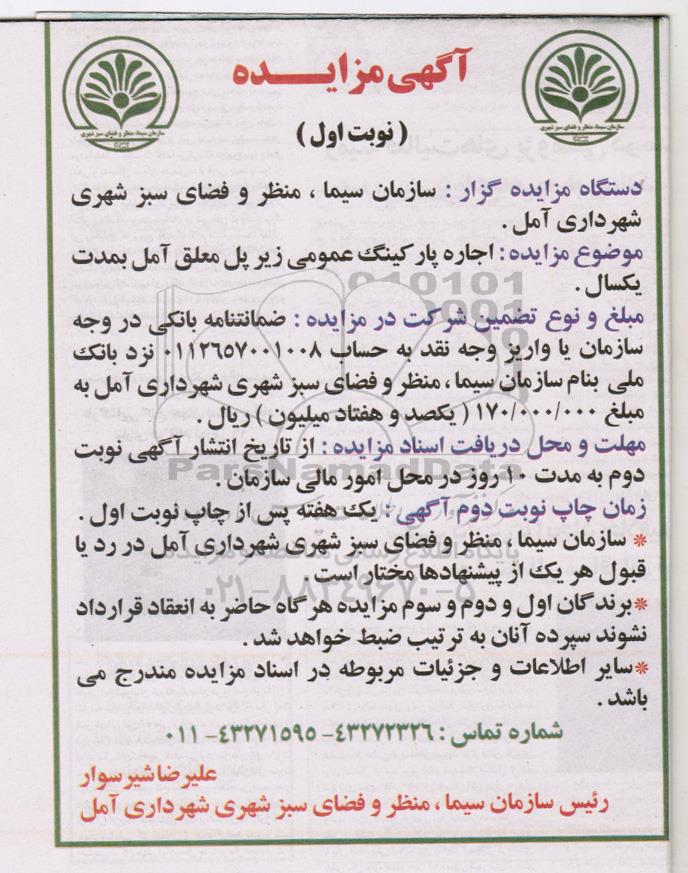 آگهی مزایـــده
( نوبت اول )
سازمان سیما، منظر و فضای سبز شهری
سازمان سیما، منظر و فضای سبز شهری
دستگاه مزایده گزار : سازمان سیما ، منظر و فضای سبز شهری
شهرداری آمل .
موضوع مزایده : اجاره پارکینگ عمومی زیر پل معلق آمل بمدت
یکسال .
مبلغ و نوع تضمین شرکت در مزایده : ضمانتنامه بانکی در وجه
سازمان یا واریز وجه نقد به حساب ۰۱۱۲۶۵۷۰۰۱۰۰۸ نزد بانک
ملی بنام سازمان سیما ، منظر و فضای سبز شهری شهرداری آمل به
مبلغ ۱۷۰/۰۰۰/۰۰۰ ( یکصد و هفتاد میلیون ) ریال .
مهلت و محل دریافت اسناد مزایده : از تاریخ انتشار آگهی نوبت
دوم به مدت ۱۰ روز در محل امور مالی سازمان .
ParsNamadData
زمان چاپ نوبت دوم آگهی : یک هفته پس از چاپ نوبت اول .
* سازمان سیما ، منظر و فضای سبز شهری شهرداری آمل در رد یا
قبول هر یک از پیشنهادها مختار است .
۰۲۱-۸۸۳۴۹۶۷۰-۵
*برندگان اول و دوم و سوم مزایده هر گاه حاضر به انعقاد قرارداد
نشوند سپرده آنان به ترتیب ضبط خواهد شد .
*سایر اطلاعات و جزئیات مربوطه در اسناد مزایده مندرج می
باشد .
شماره تماس : ۴۳۲۷۲۳۲۶- ۴۳۲۷۱۵۹۵- ۰۱۱
علیرضا شیرسوار
رئیس سازمان سیما ، منظر و فضای سبز شهری شهرداری آمل